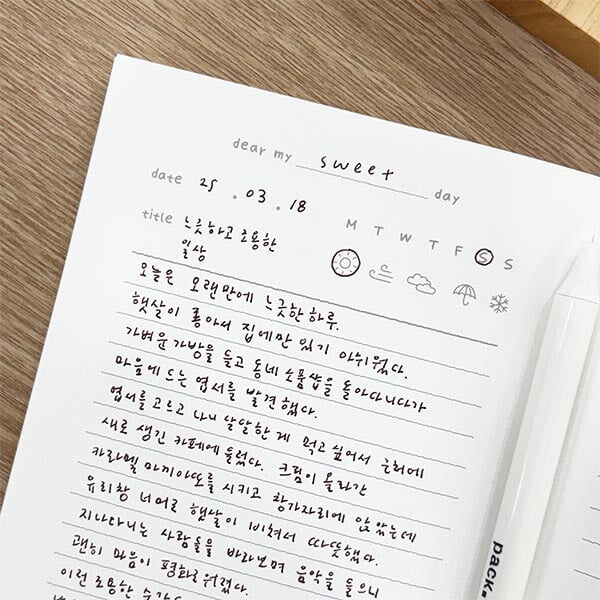 dear my sweet day
date 25 . 03 . 18
title 느긋하고 조용한
일상
M T W T F S S
오늘은 오랜만에 느긋한 하루.
햇살이 좋아서 집에만 있기 아쉬웠다.
가벼운 가방을 들고 동네 소품샵을 돌아다니다가
마음에 드는 엽서를 발견했다.
엽서를 고르고 나니 달달한 게 먹고 싶어서 근처에
새로 생긴 카페에 들렀다. 크림이 올라간
카라멜 마끼아또를 시키고 창가자리에 앉았는데
유리창 너머로 햇살이 비춰서 따뜻했다.
지나다니는 사람들을 바라보며 음악을 들으니
괜히 마음이 평화로워졌다.
이런 조용한 순간
pack